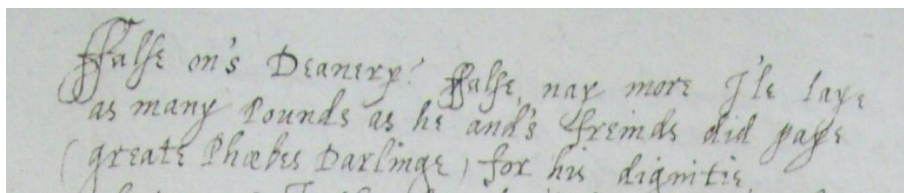 ffalse on's Deanery? ffalse, nay more I'le laye
as many Pounds as he and's freinds did paye
(greate Phœbes Darlinge) for his dignitie